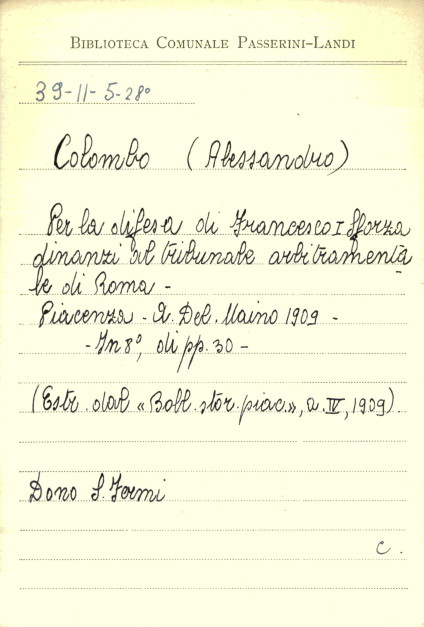 BIBLIOTECA COMUNALE PASSERINI-LANDI
39-11-5-28°
Colombo (Alessandro)
Per la difesa di Francesco I Sforza
dinanzi al tribunale arbitramenta
le di Roma -
Piacenza - A. Del. Maino 1909 -
- In 8°, di pp. 30 -
(Estr. dal «Boll. stor. piac.», a. IV, 1909).
Dono S. Fermi
C.